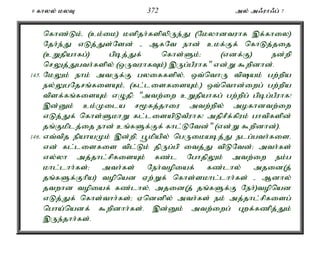 9 காலல் மலவு 372 அல் அஃராஃப் 7
கொண்டும். (உம்மை) மனிதர்களிலிருந்து (மேலானவராக இக்காலை)
தேர்ந்து எடுத்துள்ளேன் , ஆகவே நான் உமக்குக் கொடுத்ததை
(உறுதியாகப்) பிடித்துக் கொள்ளும்; (எனக்கு) நன்றி
செலுத்துபவர்களில் (ஒருவராகவும்) இருப்பீராக" என்று கூறினான்.
145. மேலும் நாம் அவருக்கு பலகைகளில், ஒவ்வொரு விஷயம் பற்றிய
நல்லுபதேசங்களையும், (கட்டளைகளையும்,) ஒவ்வொன்றைப் பற்றிய
விளக்கங்களையும் எழுதி: "அவற்றை உறுதியாகப் பற்றிப் பிடிப்பீராக!
இன்னும் உம்முடைய சமூகத்தாரை அவற்றில் அழகானவற்றை
எடுத்துக் கொள்ளுமாறு கட்டளையிடுவீராக! அதிசீக்கிரம் பாவிகளின்
தங்குமிடத்தை நான் உங்களுக்குக் காட்டுவேன்" (என்று கூறினான்).
146. எவ்வித நியாயமும் இன்றி, பூமியில் பெருமையடித்து நடப்பவர்களை,
என் கட்டளைகளை விட்டும் திருப்பி வைத்து விடுவேன்; அவர்கள்
எல்லா அத்தாட்சிகளையும் கண்ட போதிலும் அவற்றை நம்ப
மாட்டார்கள்; அவர்கள் நேர்வழியைக் கண்டால் அதனை(த்
தங்களுக்குரிய) வழியென ஏற்றுக் கொள்ளமாட்டார்கள் , ஆனால்
தவறான வழியைக் கண்டால், அதனை(த் தங்களுக்கு நேர்)வழியென
எடுத்துக் கொள்வார்கள்; ஏனெனில் அவர்கள் நம் அத்தாட்சிகளைப்
பொய்யெனக் கூறினார்கள். இன்னும் அவற்றைப் புறக்கணித்தும்
இருந்தார்கள்.